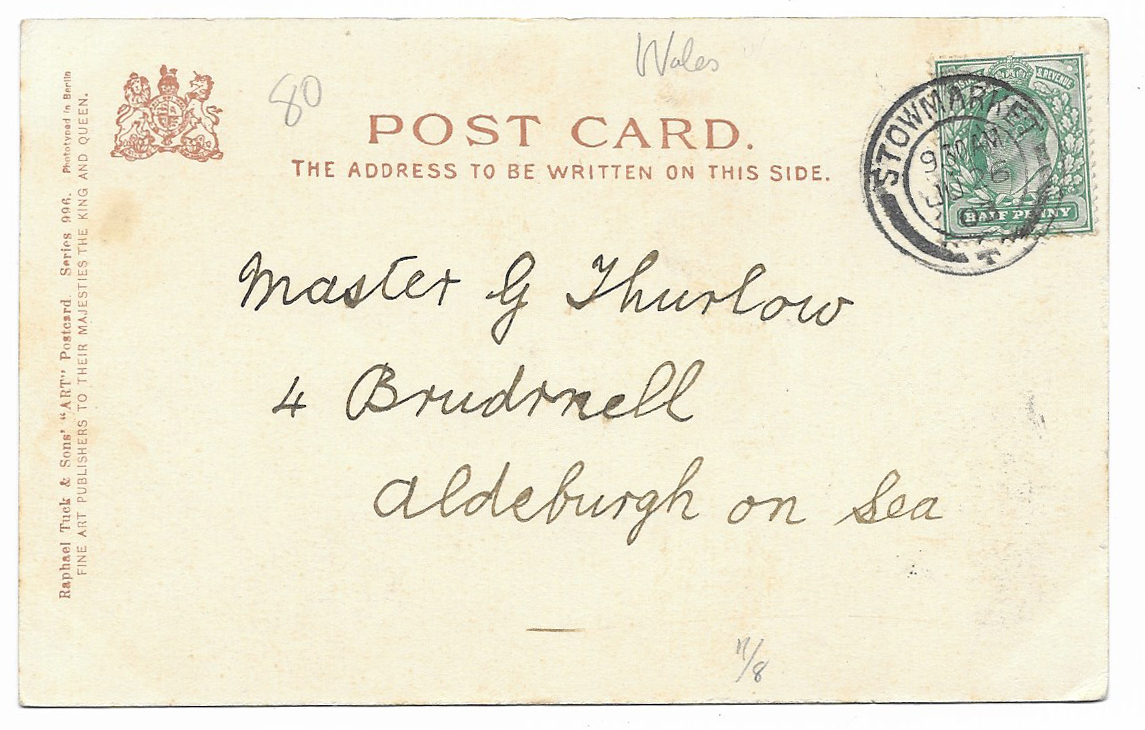 Wales
80
POST CARD.
THE ADDRESS TO BE WRITTEN ON THIS SIDE.
Raphael Tuck & Sons' "ART" Postcard. Series 996. Phototyped in Berlin
FINE ART PUBLISHERS TO THEIR MAJESTIES THE KING AND QUEEN.
& REVENUE
HALF PENNY
STOWMARKET
9 30 AM
Master G Thurlow
4 Brudrnell
Aldeburgh on Sea